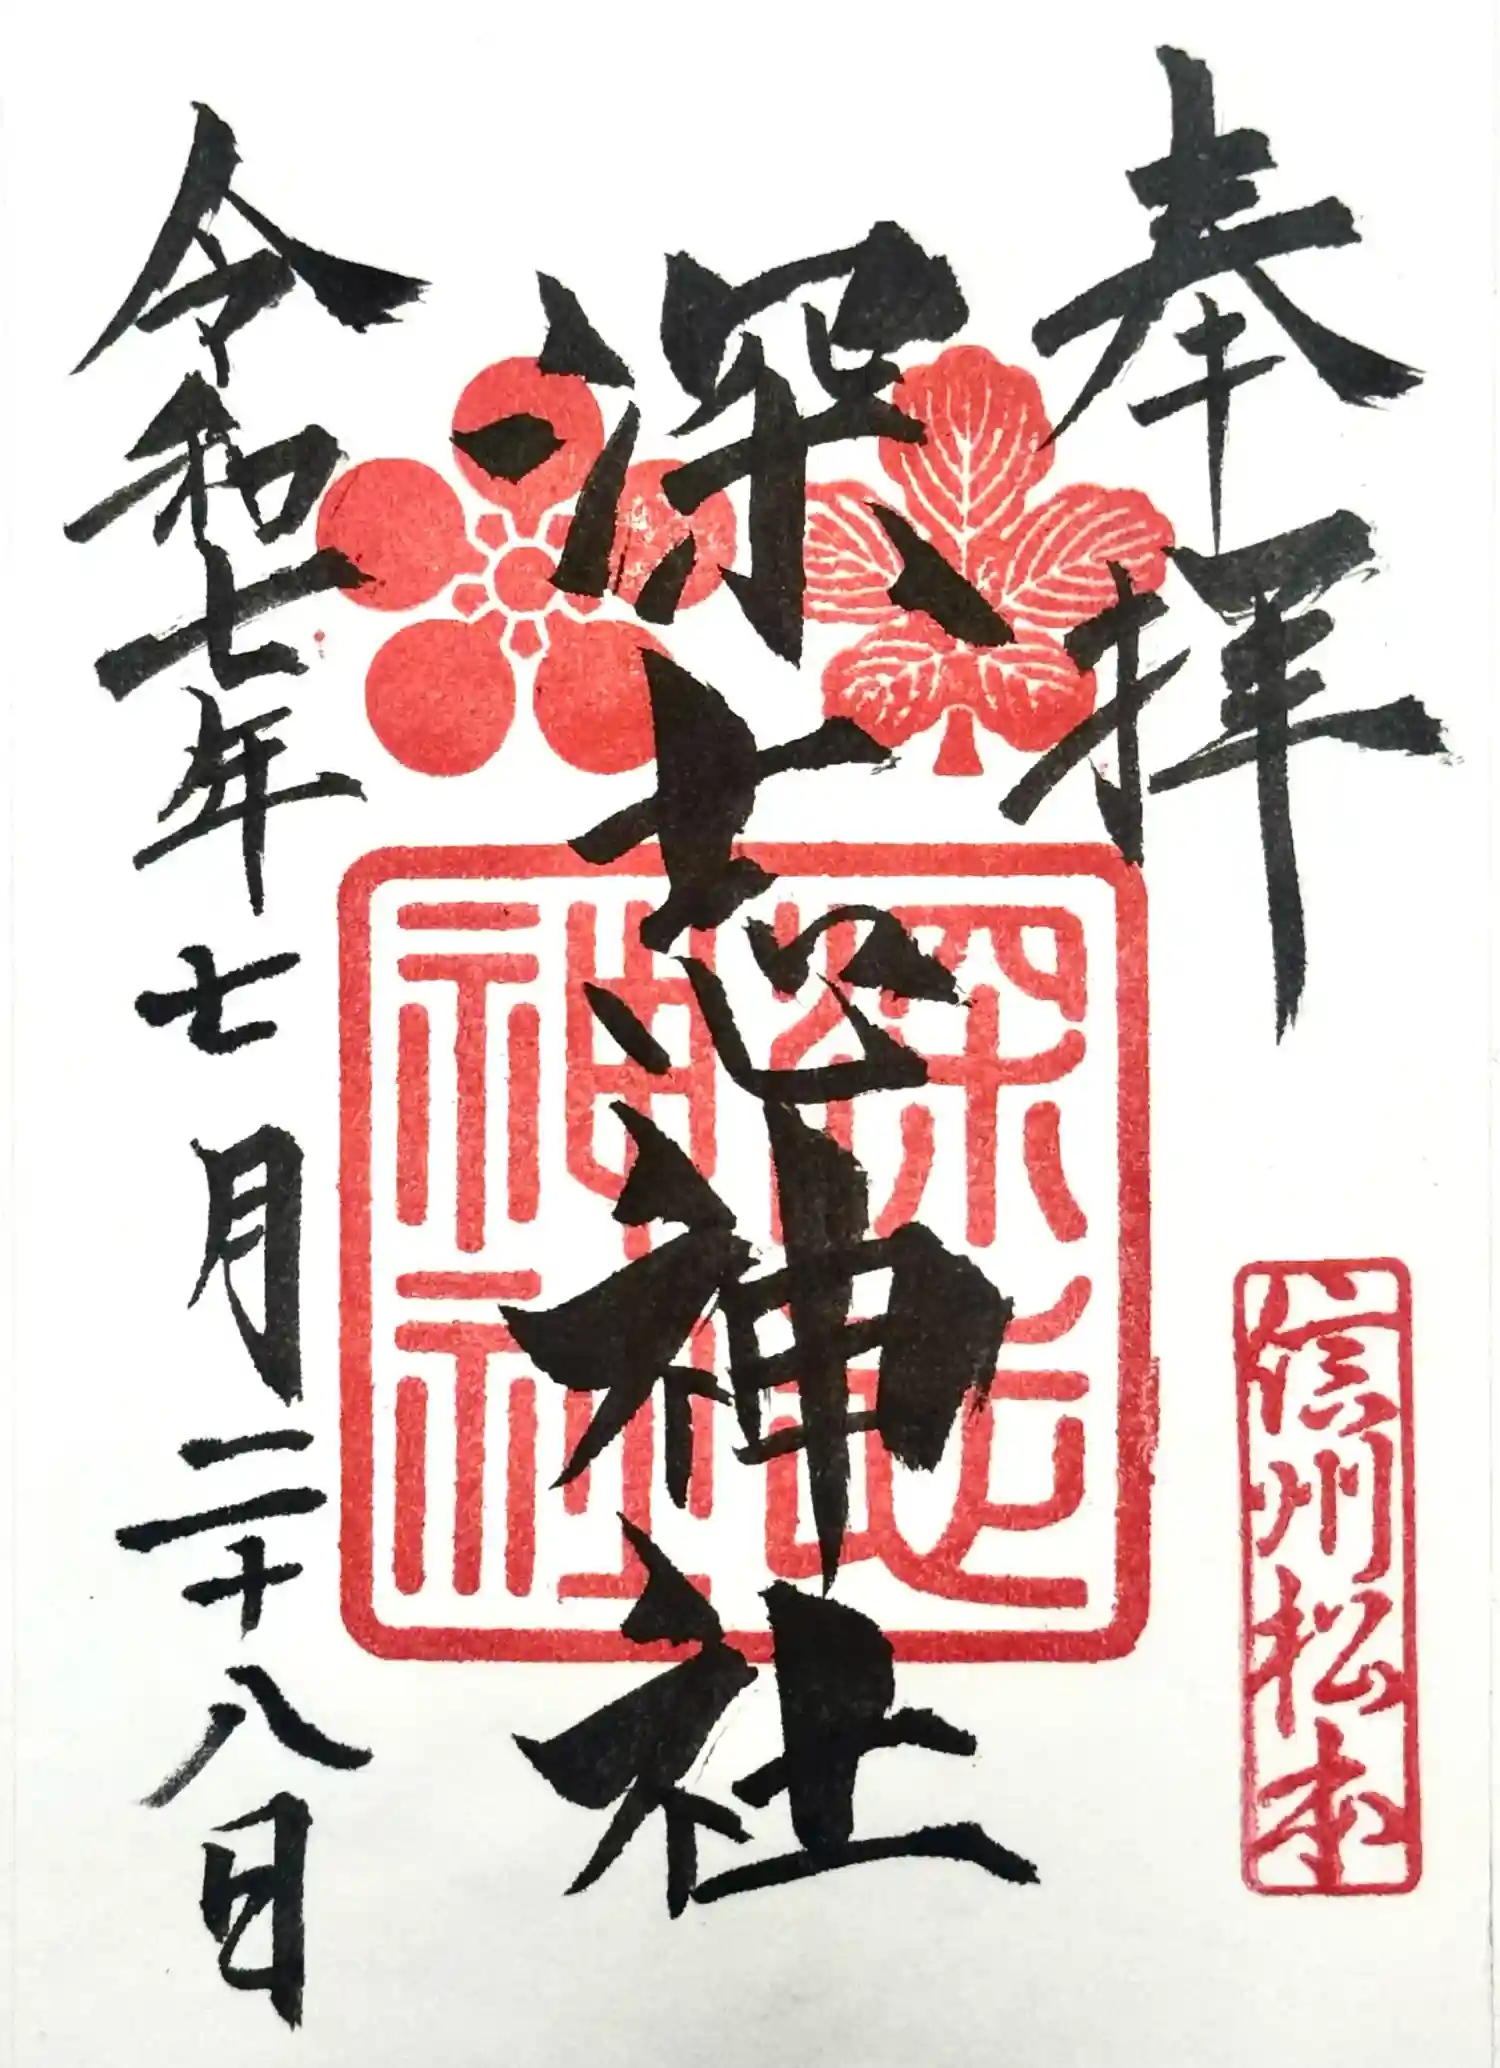 奉拝
信州松本
深志神社
深志
神社
令和七年七月二十八日